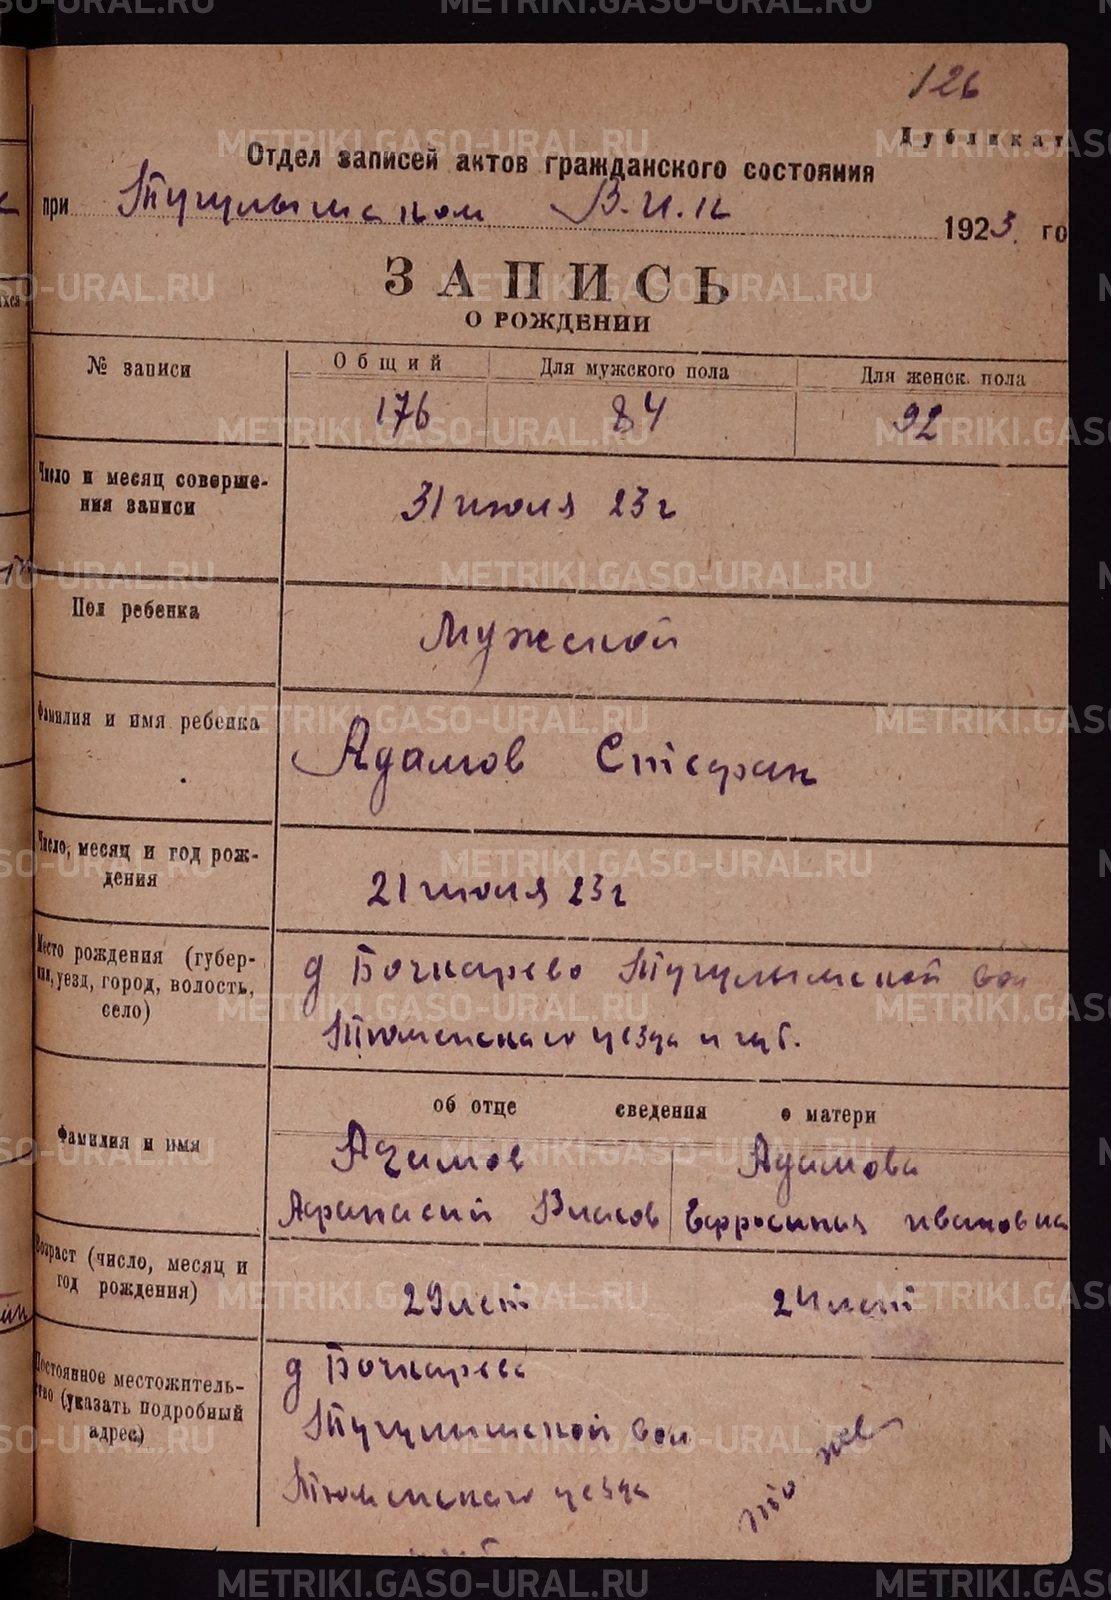 126
Дубликат
Отдел записей актов гражданского состояния
при Тугулымском В.И.К 1923 го
ЗАПИСЬ
О РОЖДЕНИИ
№ записи Общий Для мужского пола Для женск. пола
176 84 92
Число и месяц соверше-
ния записи
31 июля 23 г
Пол ребенка
Мужской
Фамилия и имя ребенка
Адамов Стефан
Число, месяц и год рож-
дения
21 июля 23 г
Место рождения (губер-
ния, уезд, город, волость,
село)
д Бочкарево Тугулымской вол
Тюменскаго уезда и губ.
об отце сведения о матери
Фамилия и имя
Адамов Адамова
Афанасий Власов Ефросиния ивановна
Возраст (число, месяц и
год рождения)
29 лет 24 лет
Постоянное местожитель-
ство (указать подробный
адрес)
д Бочкарева
Тугулымской вол
Тюменскаго уезда
то же
METRIKI.GASO-URAL.RU